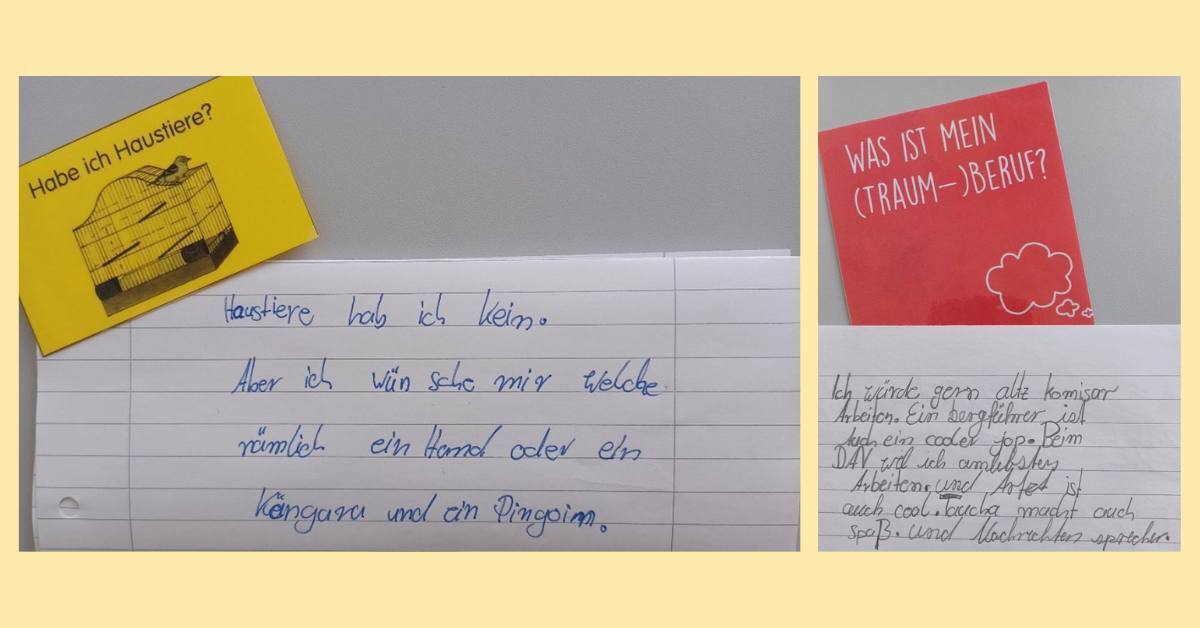 Habe ich Haustiere?
Haustiere hab ich kein.
Aber ich wün sche mir welche
nämlich ein Hund oder ein
Kängaru und ein Pingoin.
WAS IST MEIN
(TRAUM-)BERUF?
Ich würde gern altz komisar
Arbeiten. Ein bergführer ist
Auch ein cooler jop. Beim
DAV wil ich amlibsten
Arbeiten. und Artzt ist
auch cool. macht auch
spaß. und Nachrichten sprecher.